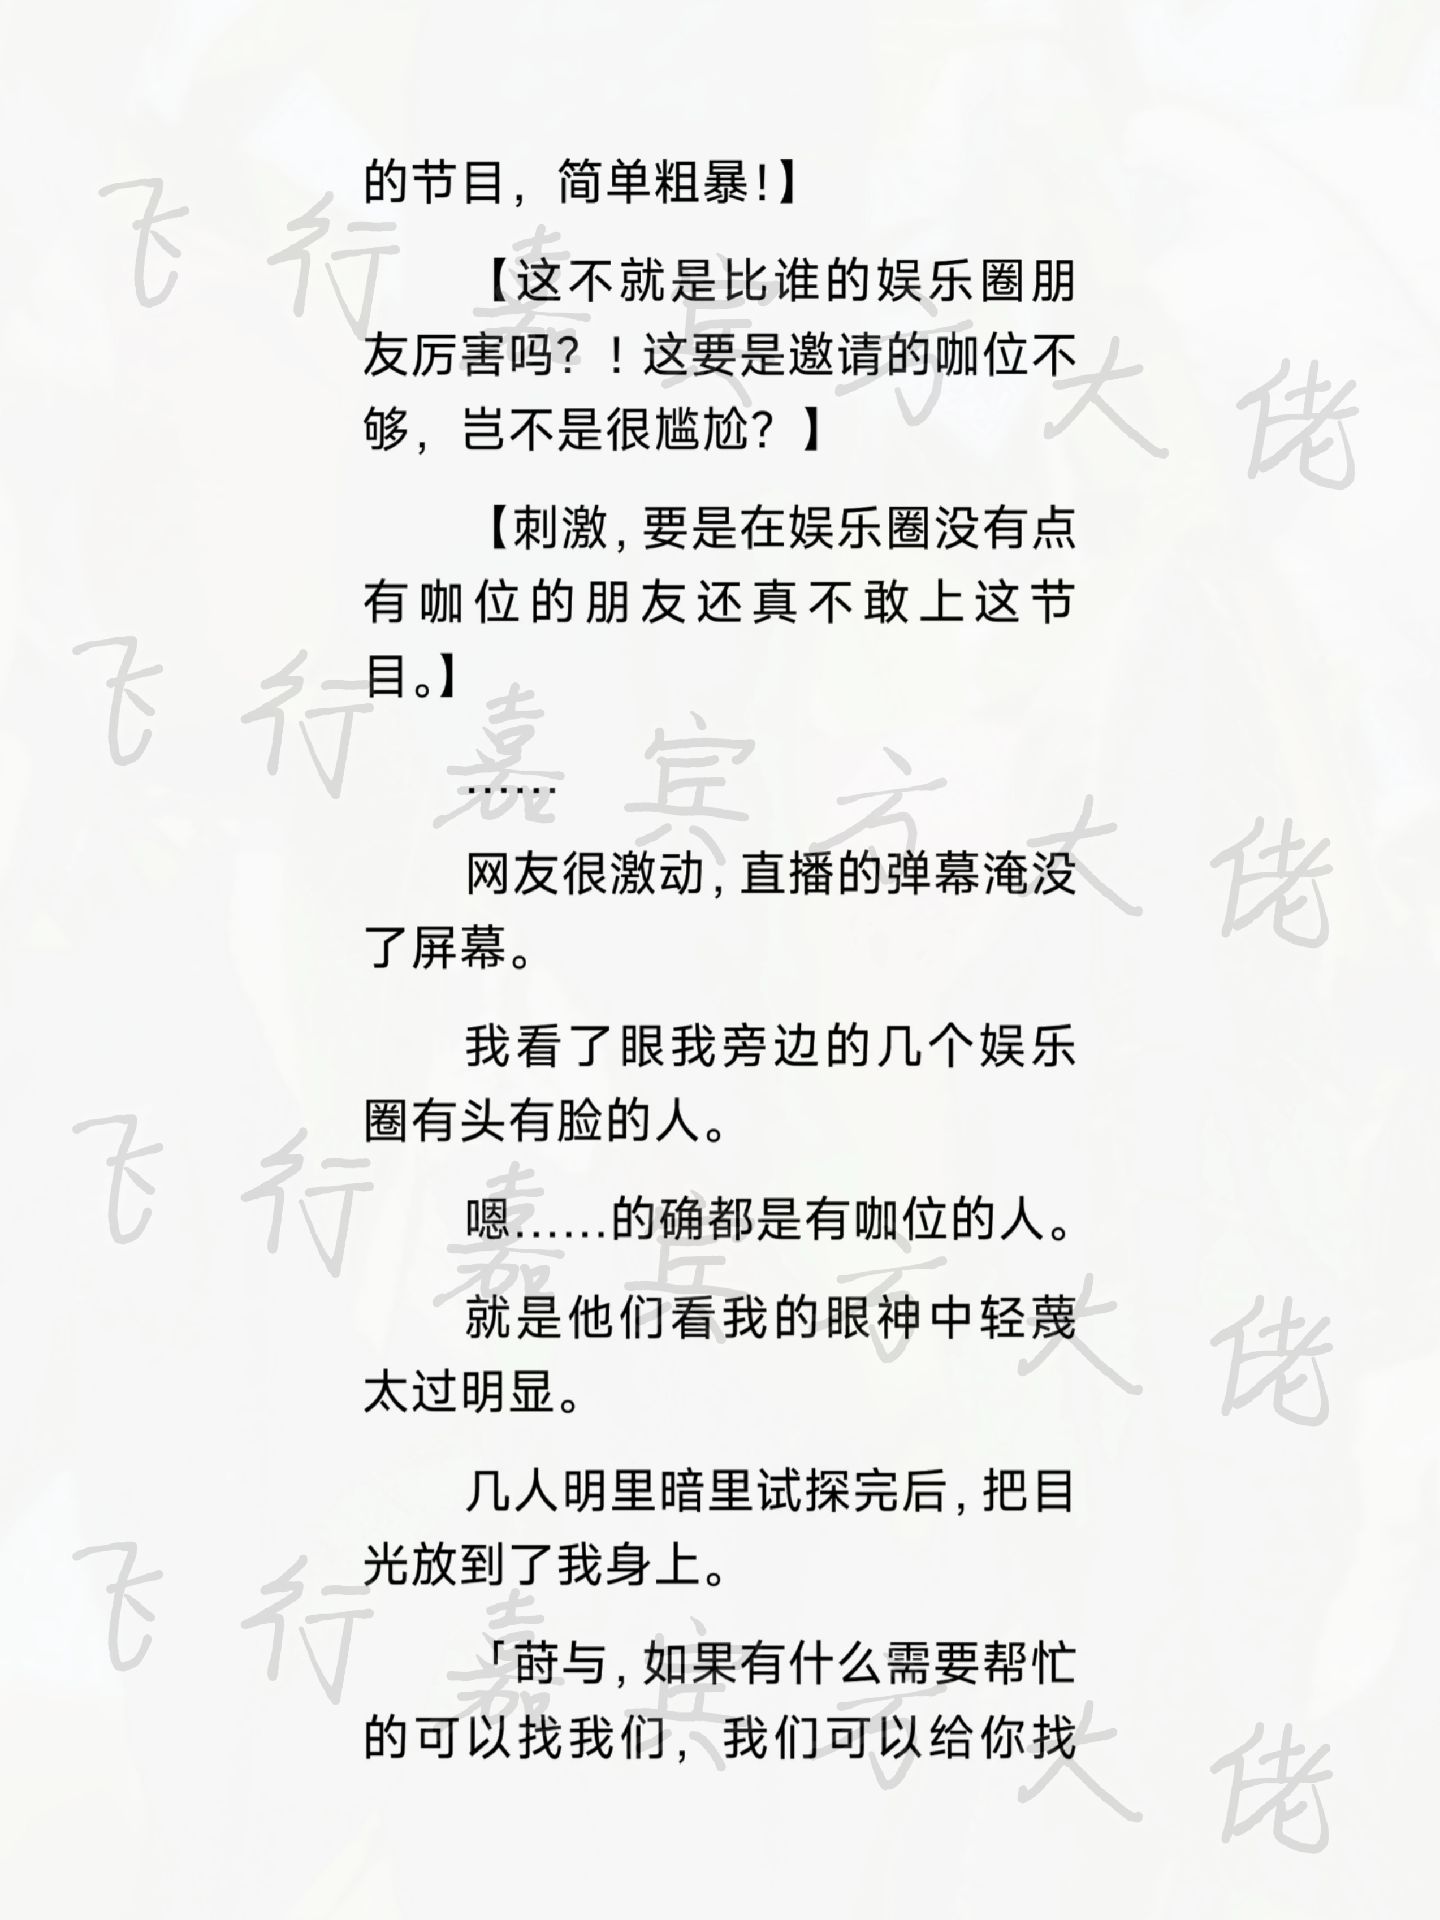 的节目，简单粗暴！】
【这不就是比谁的娱乐圈朋
友厉害吗？！这要是邀请的咖位不
够，岂不是很尴尬？】
【刺激，要是在娱乐圈没有点
有咖位的朋友还真不敢上这节
目。】
……
网友很激动，直播的弹幕淹没
了屏幕。
我看了眼我旁边的几个娱乐
圈有头有脸的人。
嗯……的确都是有咖位的人。
就是他们看我的眼神中轻蔑
太过明显。
几人明里暗里试探完后，把目
光放到了我身上。
「莳与，如果有什么需要帮忙
的可以找我们，我们可以给你找
飞行嘉宾方大佬
飞行嘉宾方大佬
飞行嘉宾方大佬
飞行嘉宾方大佬